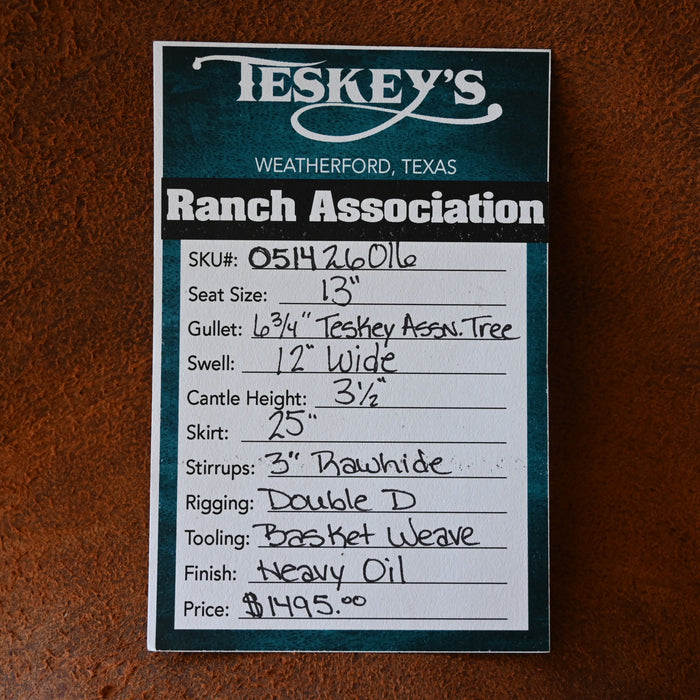 TESKEY'S
WEATHERFORD, TEXAS
Ranch Association
SKU#: 051426016
Seat Size: 13"
Gullet: 6 3/4" Teskey Assn. Tree
Swell: 12" Wide
Cantle Height: 3 1/2"
Skirt: 25"
Stirrups: 3" Rawhide
Rigging: Double D
Tooling: Basket Weave
Finish: Heavy Oil
Price: $1495.00